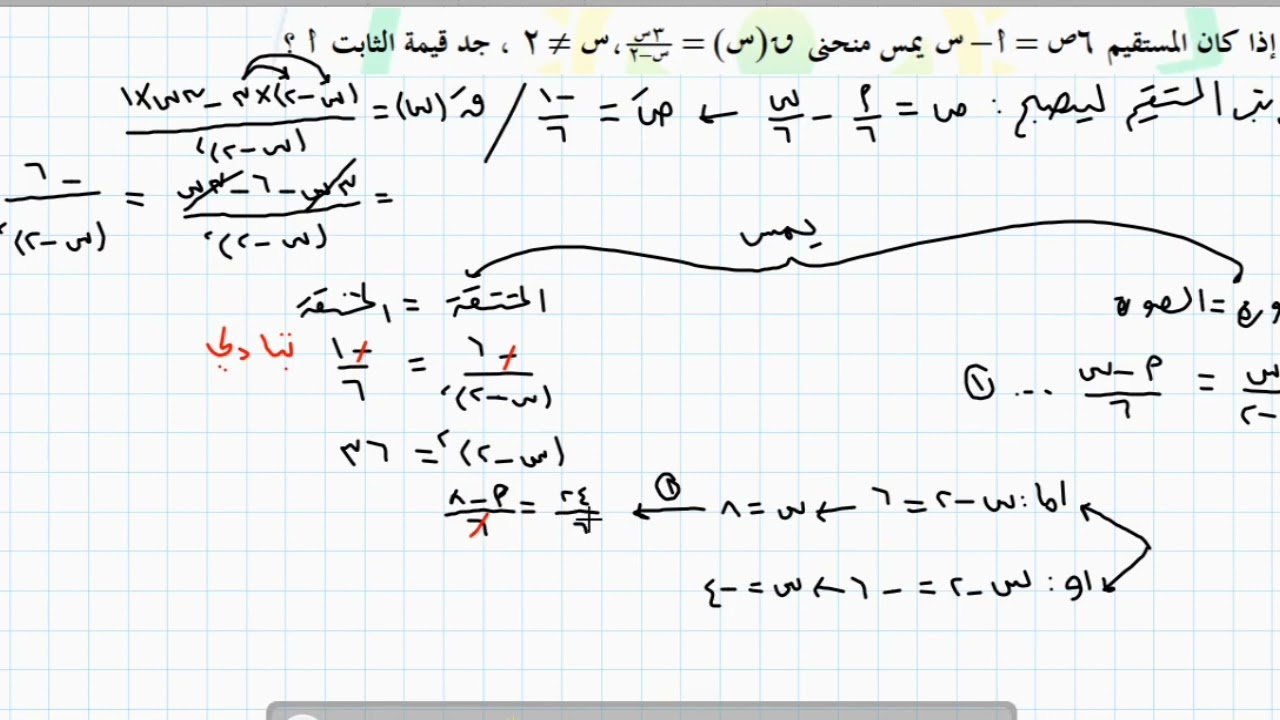 إذا كان المستقيم ٦ص = أ − س يمس منحنى ق(س) = ٣س/(س−٢) ، س ≠ ٢ ، جد قيمة الثابت أ ؟
المستقيم ليصبح : ص = أ/٦ − س/٦ ← صَ = −١/٦ / قَ(س) = ((س−٢)×٣ − ٣س×١)/(س−٢)²
= (٣س − ٦ − ٣س)/(س−٢)² = −٦/(س−٢)²
يمس
= الصورة
المشتقة = المشتقة
= (أ − س)/٦ ... ①
−٦/(س−٢)² = −١/٦ تبادلي
(س−٢)² = ٣٦
اما : س−٢ = ٦ ← س = ٨ ←① ٢٤/٦ = (أ−٨)/٦
او : س−٢ = −٦ ← س = −٤